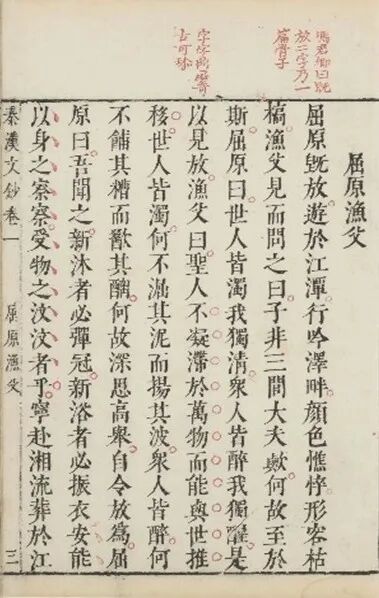 馮君卿曰旣
放二字乃一
篇骨子
字字
古可
屈原漁父
屈原旣放遊於江潭行吟澤畔顏色憔悴形容枯
槁漁父見而問之曰子非三閭大夫歟何故至於
斯屈原曰世人皆濁我獨淸衆人皆醉我獨醒是
以見放漁父曰聖人不凝滯於萬物而能與世推
移世人皆濁何不淈其泥而揚其波衆人皆醉何
不餔其糟而歠其醨何故深思高舉自令放爲屈
原曰吾聞之新沐者必彈冠新浴者必振衣安能
以身之察察受物之汶汶者乎寧赴湘流葬於江
秦漢文鈔卷一 屈原漁父 三